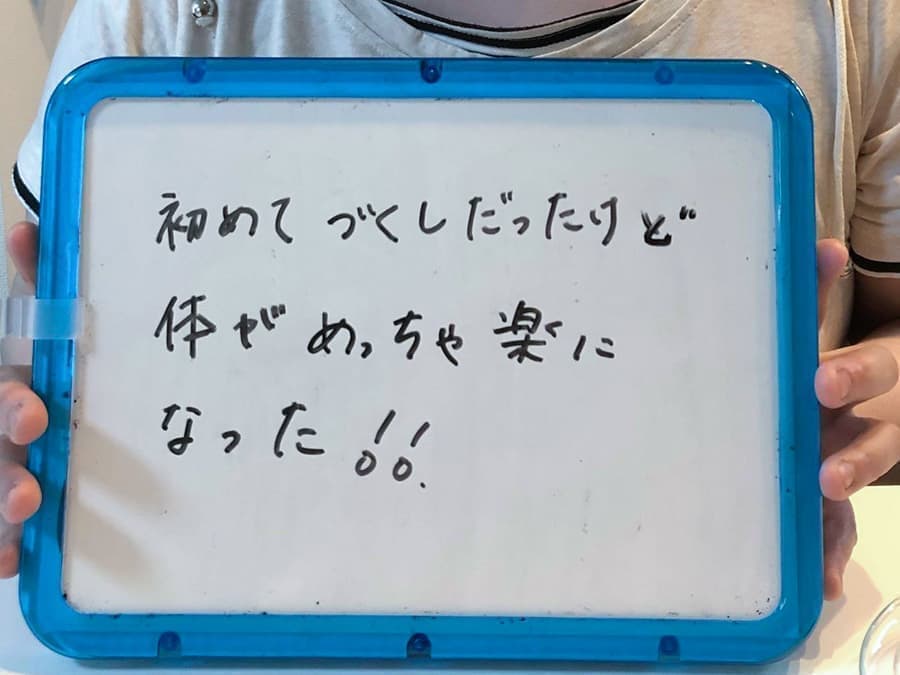 初めてづくしだったけど
体がめっちゃ楽に
なった!!